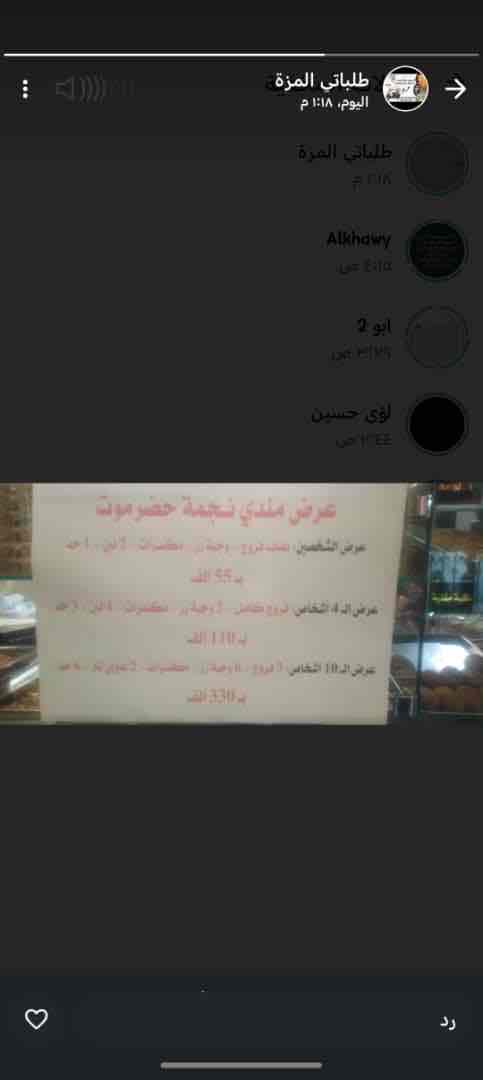 طلباتي المزة
اليوم، ١:١٨ م
طلباتي المزة
١:١٨ م
Alkhawy
٤:١٥ ص
ابو 2
٣:٢٦ ص
لؤي حسين
٢:٤٤ ص
عرض مندي نجمة حضرموت
عرض الشخصين: نصف فروج - وجبة رز - مكسرات - 2 لبن - 1 حد
بـ 55 الف
عرض الـ 4 اشخاص: فروج كامل - 2 وجبة رز - مكسرات - 4 لبن - 3 حد
بـ 110 الف
عرض الـ 10 اشخاص: 3 فروج - 6 وجبة رز - مكسرات - 2 عيران لتر - 6 حد
بـ 330 الف
رد